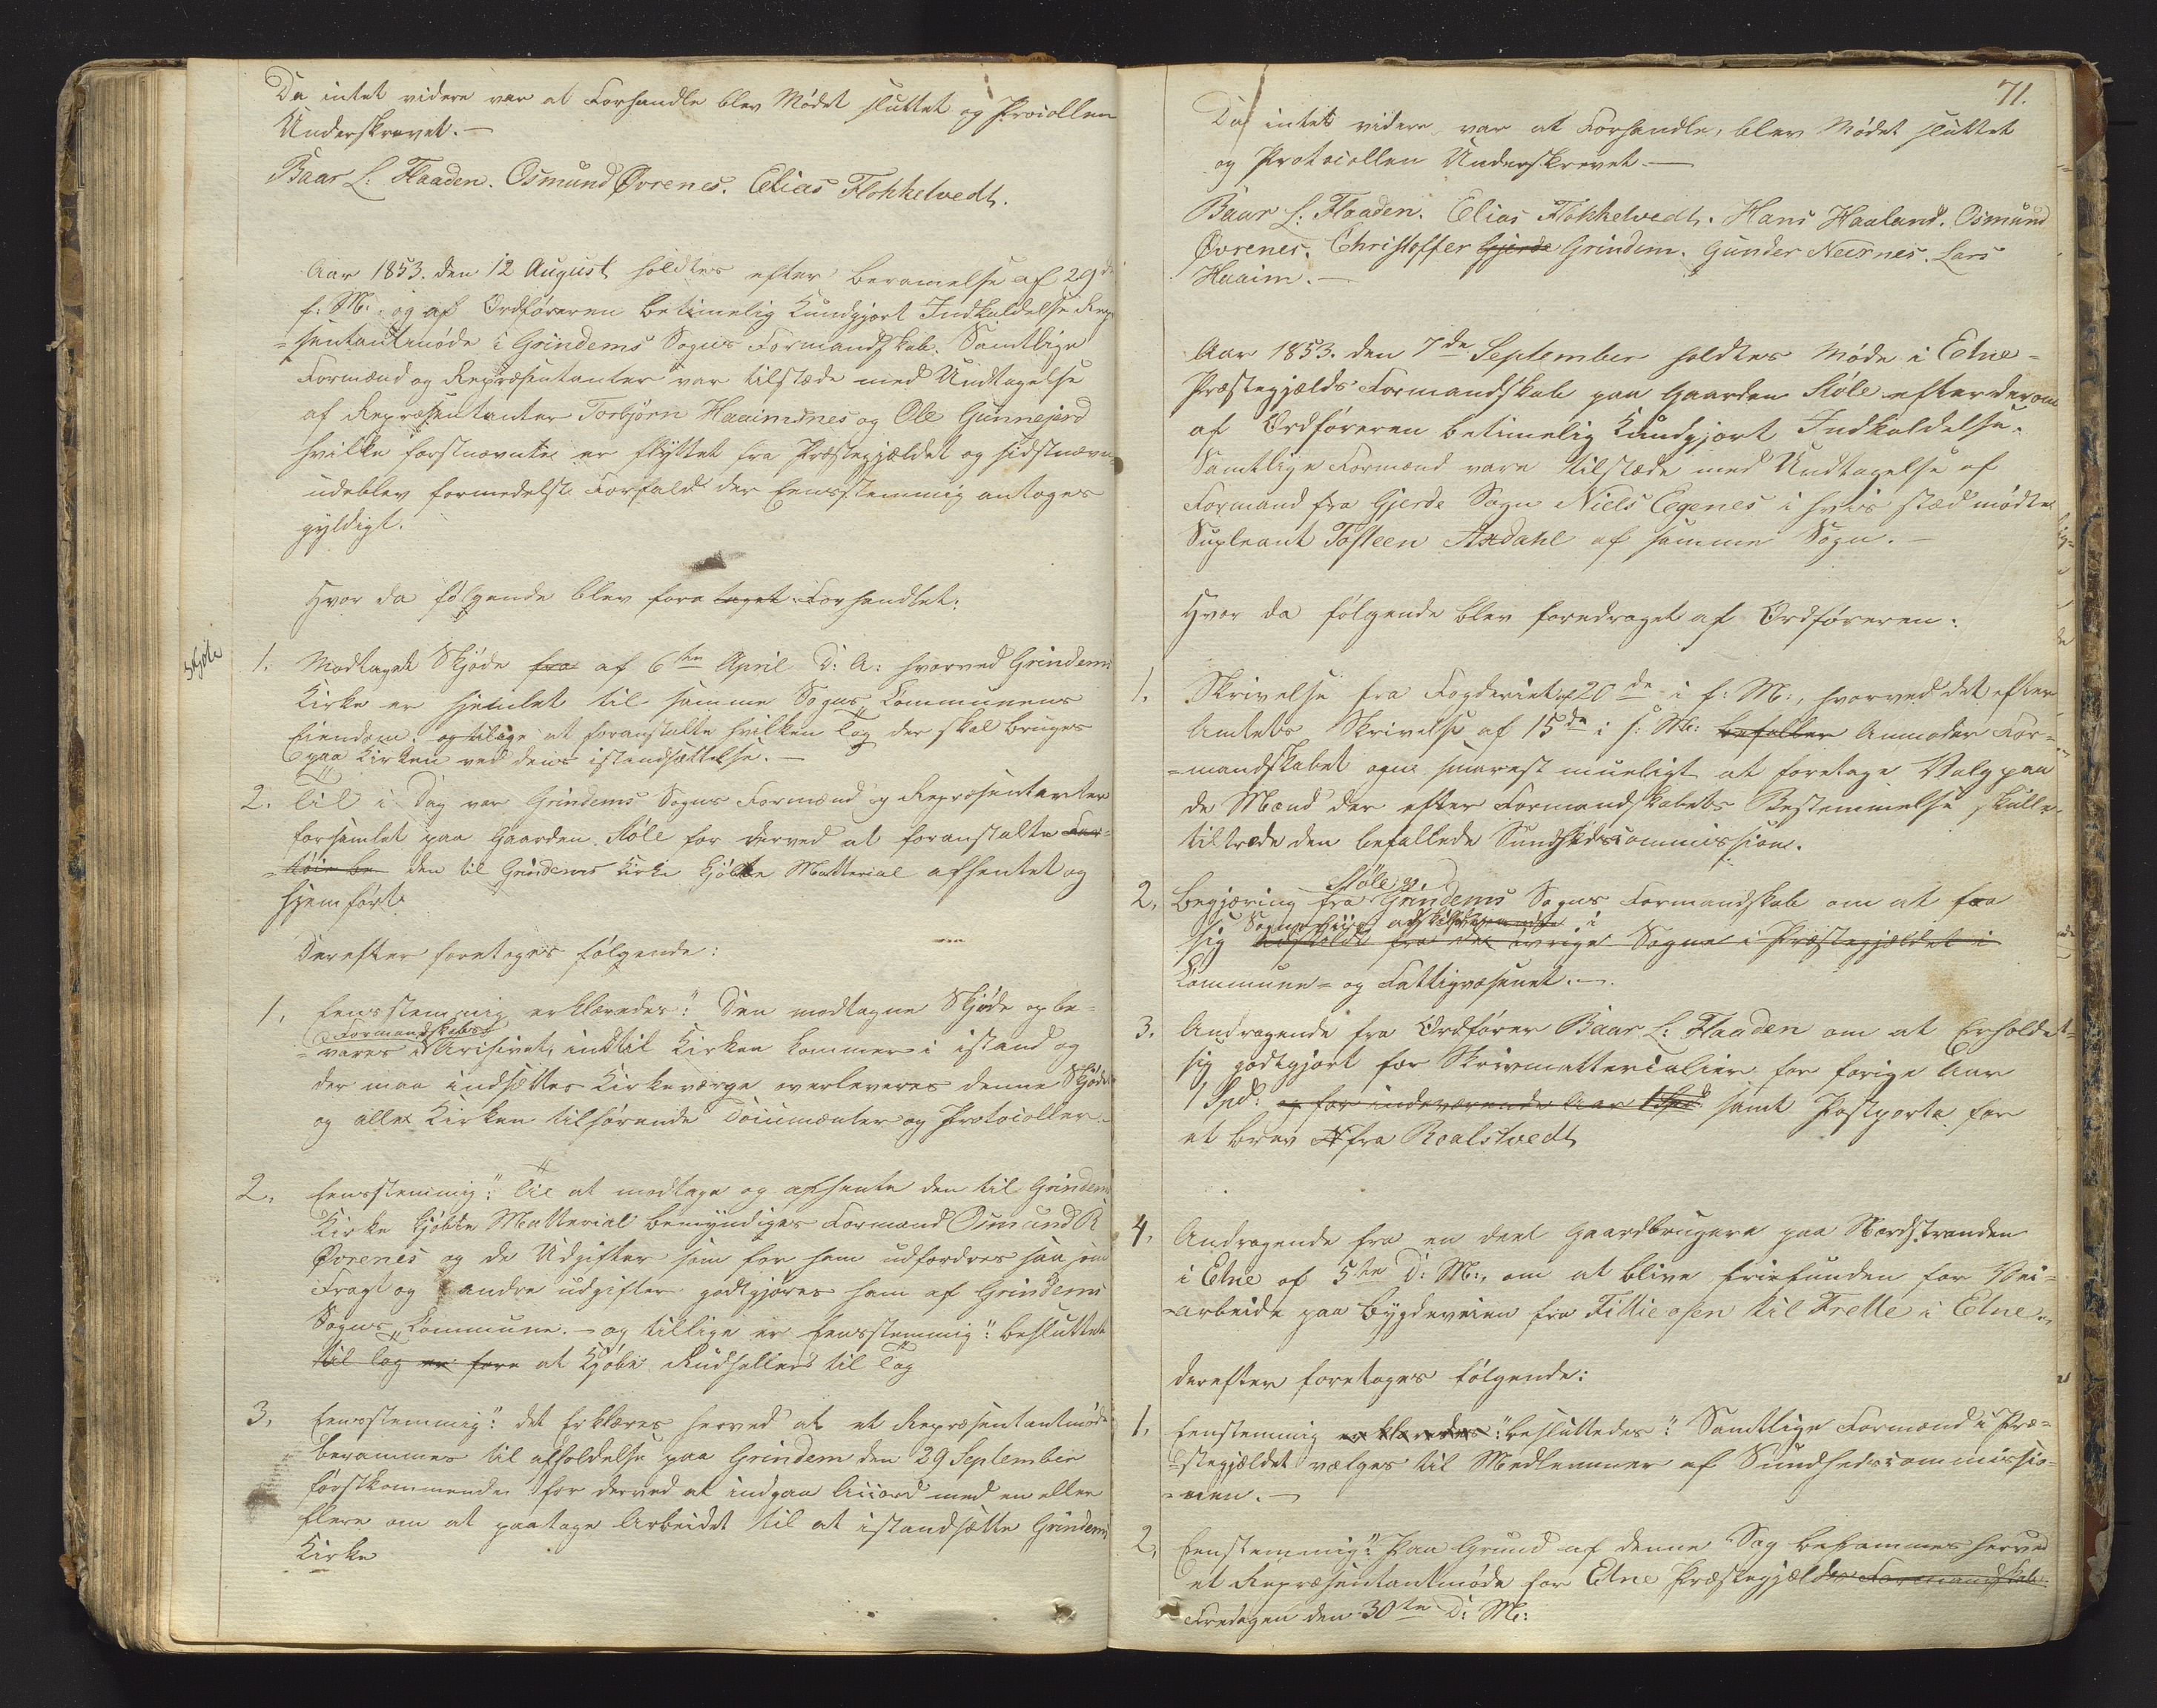 Da intet videre var at Forhandle blev Mødet sluttet og Procollen
Underskrevet.—
Baar L: Flaaden. Osmund Øvrenes. Elias Flokketvedt.
Aar 1853. den 12 August holdtes efter beramelse af 29de
f: M: og af Ordføreren betimelig Kundgjort Indkaldelse Rep
=sentantmøde i Grindems Sogns Formandskab. Samtlige
Formænd og Repræsentanter var tilstæde med Undtagelse
af Repræsentanter Torbjørn Haaimsnes og Ole Gunnejord
hvilke forstnævnte er flyttet fra Præstegjældet og sidstnævn
udeblev formedelst Forfald der Eensstemmig antoges
gyldigt.
Hvor da følgende blev fore taget Forhandlet:
Skjøte
1. Modtaget Skjøde fra af 6te April d: A: hvorved Grindems
Kirke er hjemlet til samme Sogns Communens
Eiendom. og tilige at foranstalte hvilken Tag der skal bruges
paa Kirken ved dens istandsættelse.—
2. Til i Dag var Grindems Sogns Formænd og Repræsentanter
forsamlet paa Gaarden Støle for derved at foranstalte For=
=tøie be den til Grindems Kirke kjøbte Matterial afhentet og
hjemført.
Derefter foretoges følgende:
1. Eensstemmig erklæredes: Den modtagne Skjøde opbe=
Formandskabs
=vares i Arhivet, indtil Kirken kommer i istand og
der maa indsættes Kirkeværge overleveres denne Skjøde
og aller Kirken tilhørende Documenter og Protocoller.
2. Eensstemmig: Til at modtage og afhente den til Grindem
Kirke kjøbte Matterial bemyndiges Formand Osmund R
Øvrenes og de Udgifter som for ham udfordres saa som
Fragt og andre udgifter godtgjøres ham af Grindems
Sogns Commune.— og tillige er Eensstemmig: besluttet
til Tag er fore at kjøbe Rudhellers til Tag
3. Eensstemmig: det Erklæres herved at et Repræsentantmøde
berammes til afholdelse paa Grindem den 29 September
førstkommende for derved at indgaa Accord med en eller
flere om at paatage Arbeidet til at istandsætte Grindems
Kirke
71.
Da intet videre var at Forhandle, blev Mødet sluttet
og Protocollen Underskrevet.—
Baar L: Flaaden. Elias Flokketvedt. Hans Haaland. Osmund
Øvrenes. Christoffer Gjerde Grindem. Gunder Neernes. Lars
Haaim.—
Aar 1853. den 7de September holdtes Møde i Etne=
Præstegjælds Formandskab paa Gaarden Støle efter derom
af Ordføreren betimelig Kundgjort Indkaldelse.
Samtlige Formænd vare tilstæde med Undtagelse af
Formand fra Gjerde Sogn Niels Egenes i hvis stæd mødte
Supleant Tosteen Axdahl af samme Sogn.—
Hvor da følgende blev foredraget af Ordføreren:
1. Skrivelse fra Fogderiet af 20de i f: M:, hvorved det efter
Amtets Skrivelse af 15de i f: M: befaller Anmoder For=
=mandskabet ogne snarest mueligt at foretage Valg paa
de Mænd der efter Formandskabets Bestemmelse skulle
tiltræde den befallede Sundhedscommission.
Støle og
2. Begjæring fra Grindems Sogns Formandskab om at faa
Sogneviis adskilt i
sig adskildt fra det øvrige Sogne i Præstegjældet i
Commune= og Fattigvæsenet.—
3. Andragende fra Ordfører Baar L: Flaaden om at Erholdet=
sig godtgjort for Skrivmatterialier for forige Aar
1 Spd: og for indeværende Aar 1 Spd samt Postporto for
et brev fra Roalstvedt
4. Andragende fra en deel Gaardbrugere paa Nordstranden
i Etne af 5te d: M:, om at blive friefunden for Vei=
=arbeide paa bygdeveien fra Fittieosen til Frette i Etne.
derefter foretages følgende:
1. Eenstemmig erklæredes: besluttedes: Samtlige Formænd i Præ=
=stegjældet vælges til Medlemmer af Sundhedscommissio=
=nen.—
2. Eenstemmig: Paa Grund af denne Sag berammes herved
et Repræsentantmøde for Etne Præstegjælds Formandskab
Fredagen den 30te d: M: